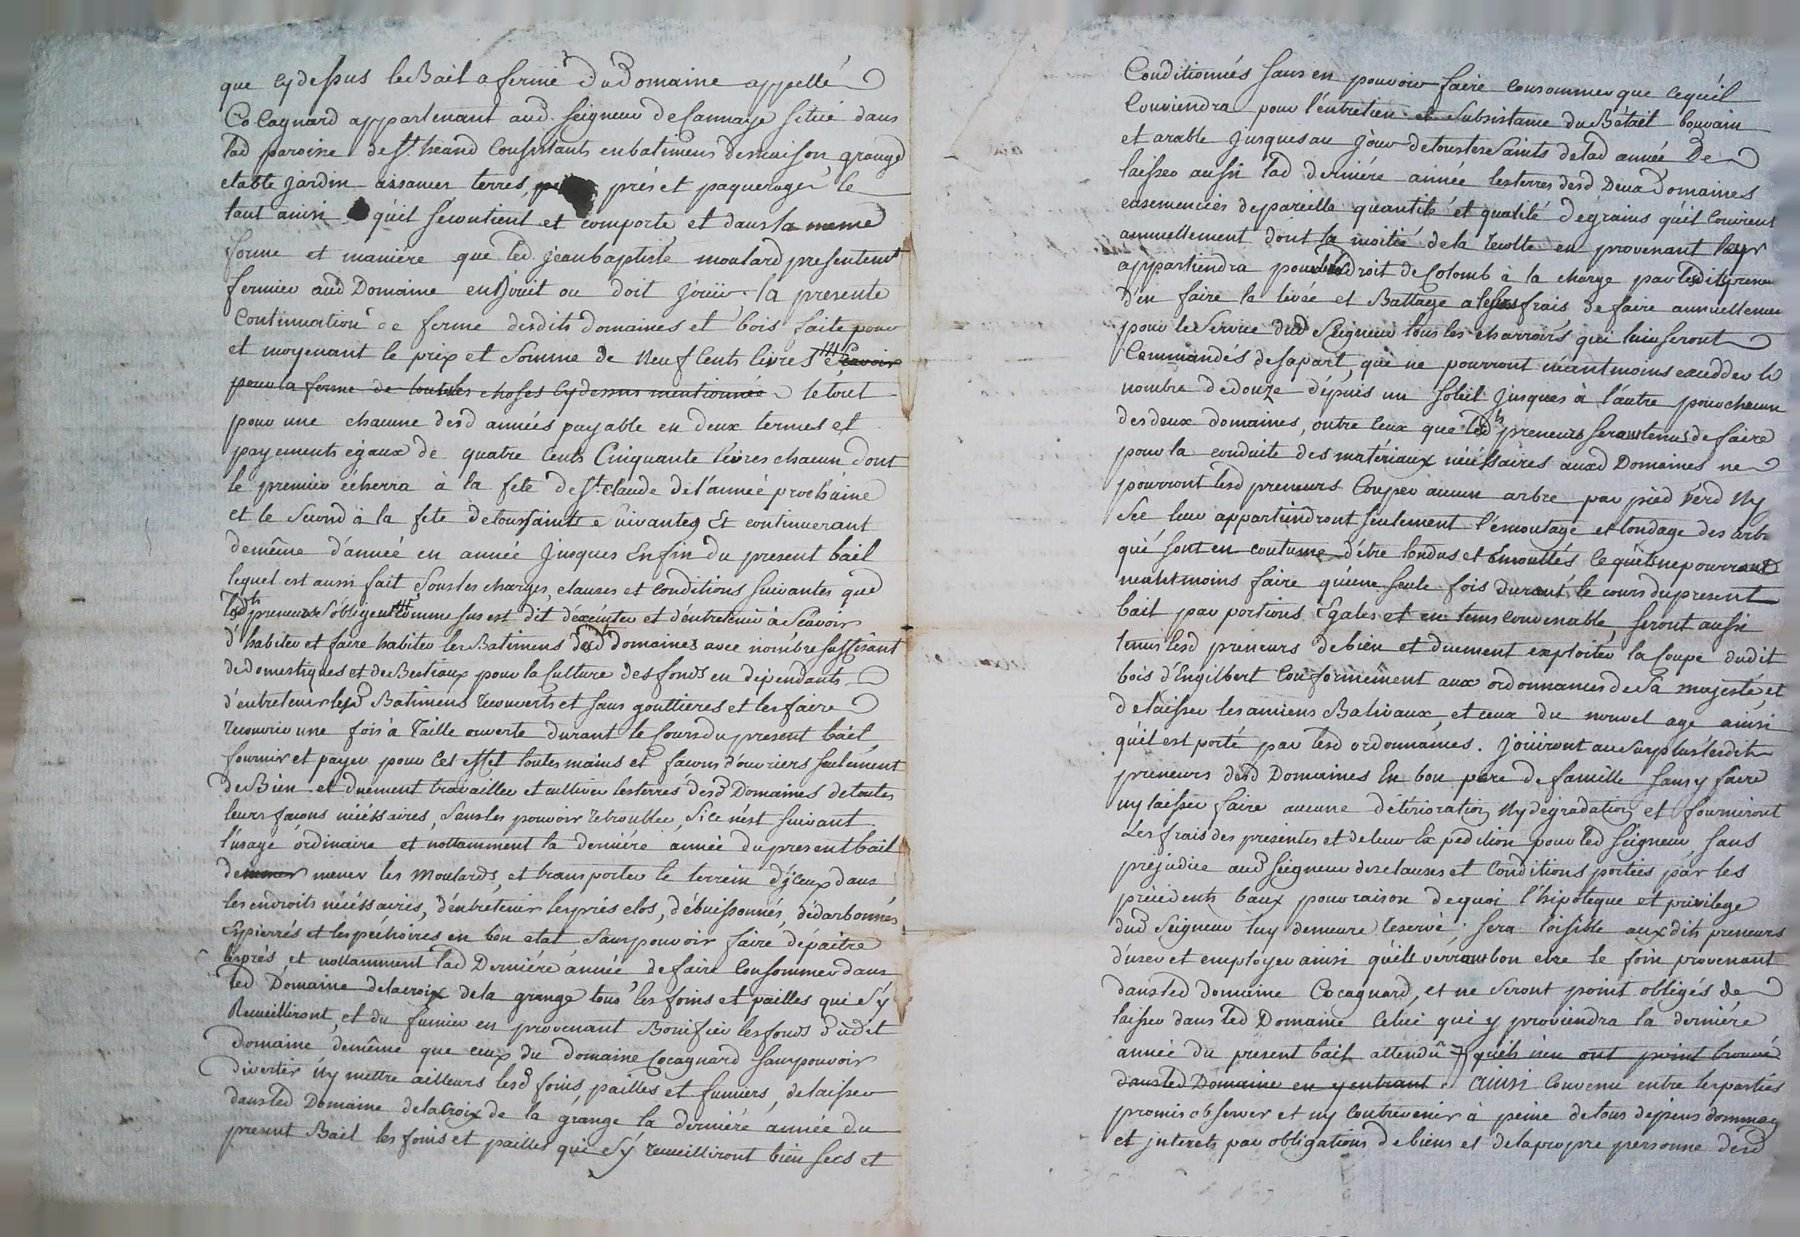 que cy dessus le Bail a ferme du Domaine appellé
Cocagnard appartenant aud. seigneur de sannaye situé dans
lad paroisse de st. heand Consistants en batimens de maison grange
etable jardin aisances terres prés et paquerages le
tout ainsi qu'il se contient et comporte et dans la meme
forme et maniere que led jean baptiste moulard presentement
fermier aud Domaine en Jouit ou doit joüir la presente
Continuation de ferme desdits domaines et bois faite pour
et moyenant le prix et somme de neuf Cents livres scavoir
pour la ferme de toutes les choses cy dessus mentionnée le tout
pour une chacune desd années payable en deux termes et
payements égaux de quatre Cents Cinquante livres chacun dont
le premier echerra à la fete de st. claude de l'année prochaine
et le second à la fete de toussaints suivantes Et continuerant
demême d'année en année jusques Enfin du present bail
lequel est aussi fait sous les charges, clauses et conditions suivantes que
lesdts preneurs s'obligent comme sus est dit d'exécuter et d'entretenir à Scavoir
d'habiter et faire habiter les Batimens desd domaines avec nombre suffisant
de domestiques et de Bestiaux pour la culture des fonds en dépendants
d'entretenir lesd Batimens recouverts et sans gouttieres et les faire
recouvrir une fois à Taille ouverte durant le Cours du present bail,
fournir et payer pour Cet effet toutes mains et façons d'ouvriers seulement
de Bien et duement travailler et cultiver les terres desd Domaines de toutes
leurs façons nécéssaires, sans les pouvoir retroubler, si ce n'est suivant
l'usage ordinaire et nottamment la derniére année du present bail
de mener les Moulards, et transporter le terrein d'jceux dans
les endroits nécéssaires, d'entretenir les prés clos, débuissonnés, dédarbonnés
Epierrés et les pechoires en bon etat sans pouvoir faire dépaitre
les prés, et nottamment lad Derniére année de faire Consommer dans
led Domaine de lacroix de la grange tous les foins et pailles qui s'y
Recueilliront, et du fumier en provenant Bonifier les fonds dudit
domaine demême que ceux du domaine Cocagnard sans pouvoir
divertir ny mettre ailleurs lesd foins, pailles et fumiers, de laisser
dans led Domaine de lacroix de la grange la derniére année du
present Bail les foins et pailles qui s'y recueilliront bien secs et
Conditionnés sans en pouvoir faire consommer que ce qu'il
Conviendra pour l'entretien et subsistance du Bétail bouvain
et arable jusques au jour de toustes Saints de lad année De
laisser aussi lad derniére année les terres desd Deux Domaines
ensemencées de pareille quantité et qualité de grains qu'il Convient
annuellement dont la moitié de la recolte en provenant leur
appartiendra pour droit de Colomb à la charge par lesdits preneurs
d'en faire la levée et Battage a leurs frais de faire annuellement
pour le service dud Seigneur tous les charrois qui luy seront
Commandés de sa part, qui ne pourront néantmoins excedder le
nombre de douze depuis un soleil jusques à l'autre pour chacun
des deux domaines, outre Ceux que lesd preneurs seront tenus de faire
pour la conduite des matériaux nécéssaires auxd Domaines ne
pourront lesd preneurs Couper aucun arbre par pied verd ny
sec leur appartiendront seulement l'émoutage et tondage des arbr
qui sont en coutume d'être tondus et émouttés ce qu'ils ne pourront
neantmoins faire qu'une seule fois durant le cours du present
bail par portions Egales et en tems convenable, seront aussi
tenus lesd preneurs de bien et duement exploiter la Coupe dudit
bois d'Engilbert Conformément aux ordonnances de sa majesté, et
de laisser les anciens Balivaux, et ceux du nouvel age ainsi
qu'il est porté par lesd ordonnances. joüiront au surplus lesdits
preneurs desd Domaines En bon pere de famille sans y faire
ny laisser faire aucune déterioration ny degradation et fourniront
Les frais des presentes et de leur Expédition pour led seigneur sans
prejudice aud seigneur des clauses et Conditions portées par les
précedents baux pour raison de quoi l'hipoteque et privilege
dud Seigneur luy demeure reservé; sera loisible auxdits preneurs
d'user et employer ainsi qu'ils verront bon etre le foin provenant
dans led domaine Cocagnard, et ne seront point obligés de
laisser dans led Domaine Celui qui y proviendra la derniére
année du present bail attendu qu'ils n'en ont point trouvé
dans led Domaine en y entrant ainsi Convenu entre les parties
promis observer et ny Contrevenir à peine de tous depens dommag
et jnterets par obligations de biens et de la propre personne desd